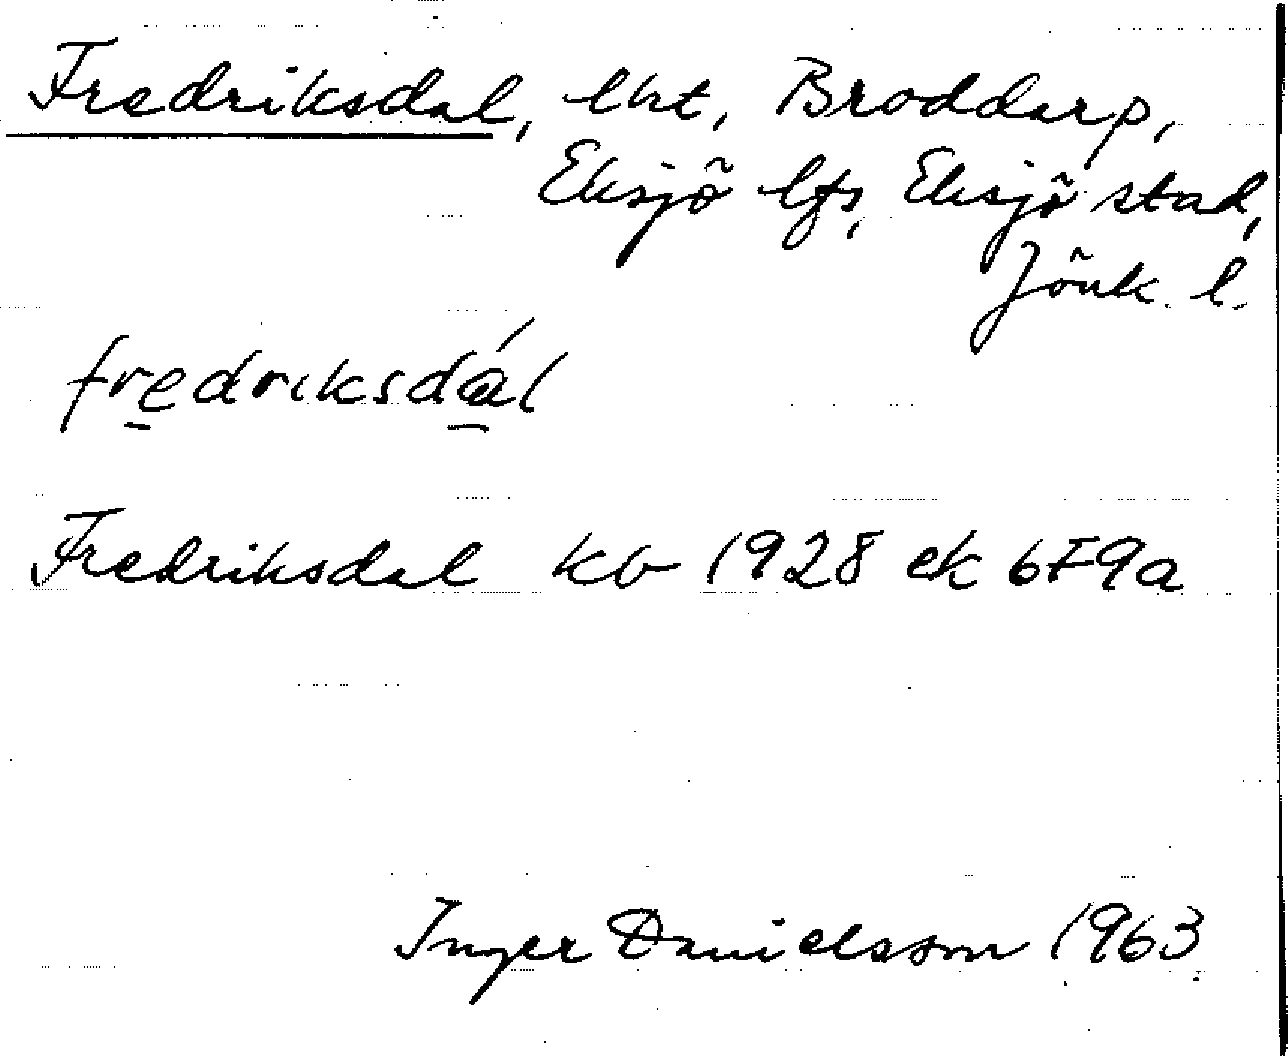 Fredriksdal, lht, Broddarp,
Eksjö lfs, Eksjö stad,
Jönk. l.
fredriksdál
Fredriksdal kb 1928 ek 6F9a
Inger Danielsson 1963